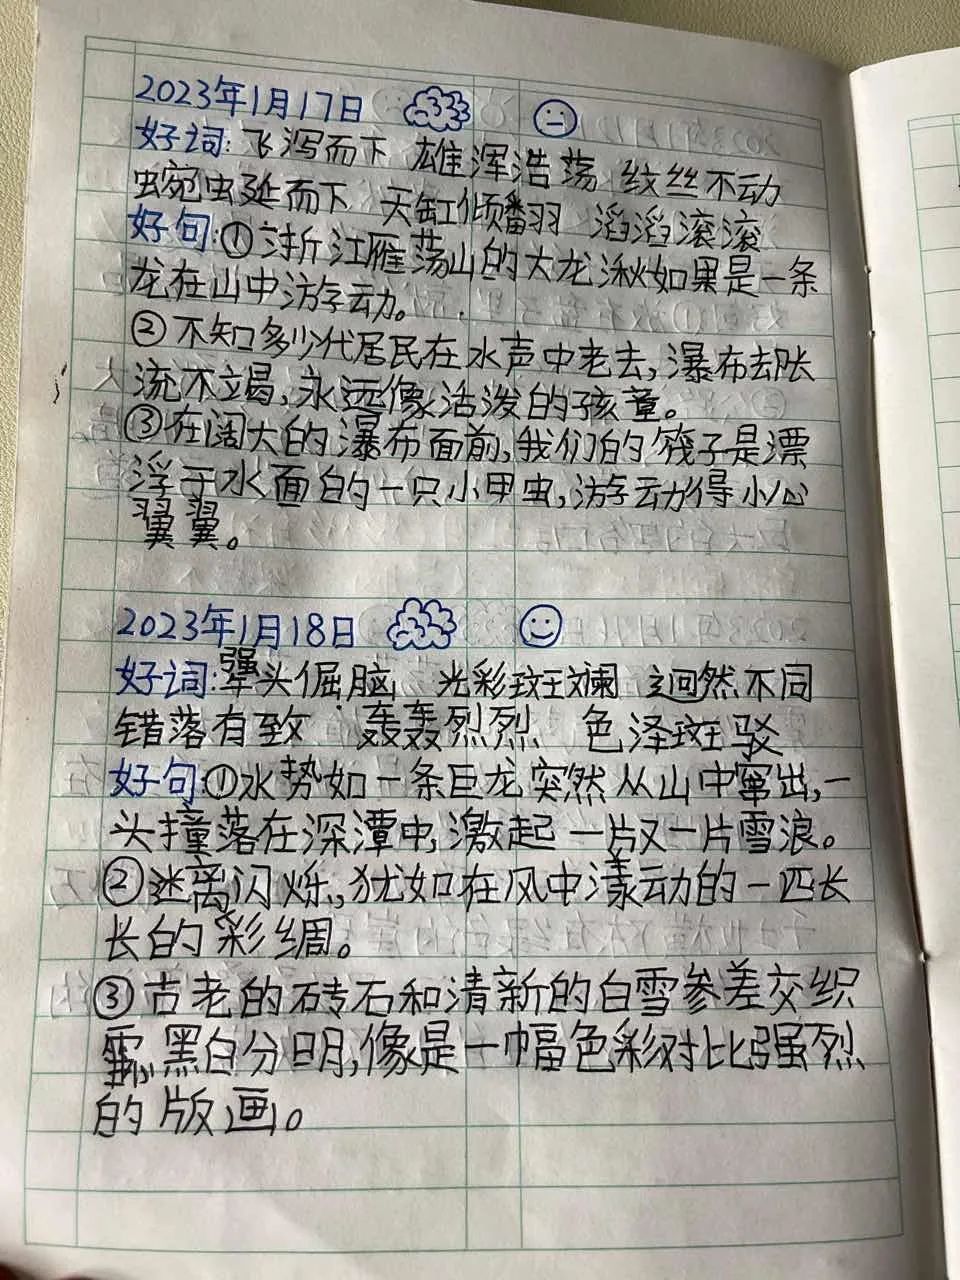 2023年1月17日
好词:飞泻而下 雄浑浩荡 纹丝不动
蜿蜒而下 天缸倾翻 滔滔滚滚
好句:①浙江雁荡山的大龙湫如果是一条
龙在山中游动。
②不知多少代居民在水声中老去,瀑布去
流不竭,永远像活泼的孩童。
③在阔大的瀑布面前,我们的筏子是漂
浮于水面的一只小甲虫,游动得小心
翼翼。
2023年1月18日
好词:犟头倔脑 光彩斑斓 迥然不同
错落有致 轰轰烈烈 色泽斑驳
好句:①水势如一条巨龙突然从山中窜出,一
头撞落在深潭中,激起一片又一片雪浪。
②迷离闪烁,犹如在风中漾动的一匹长
长的彩绸。
③古老的砖石和清新的白雪参差交织
黑白分明,像是一幅色彩对比强烈
的版画。